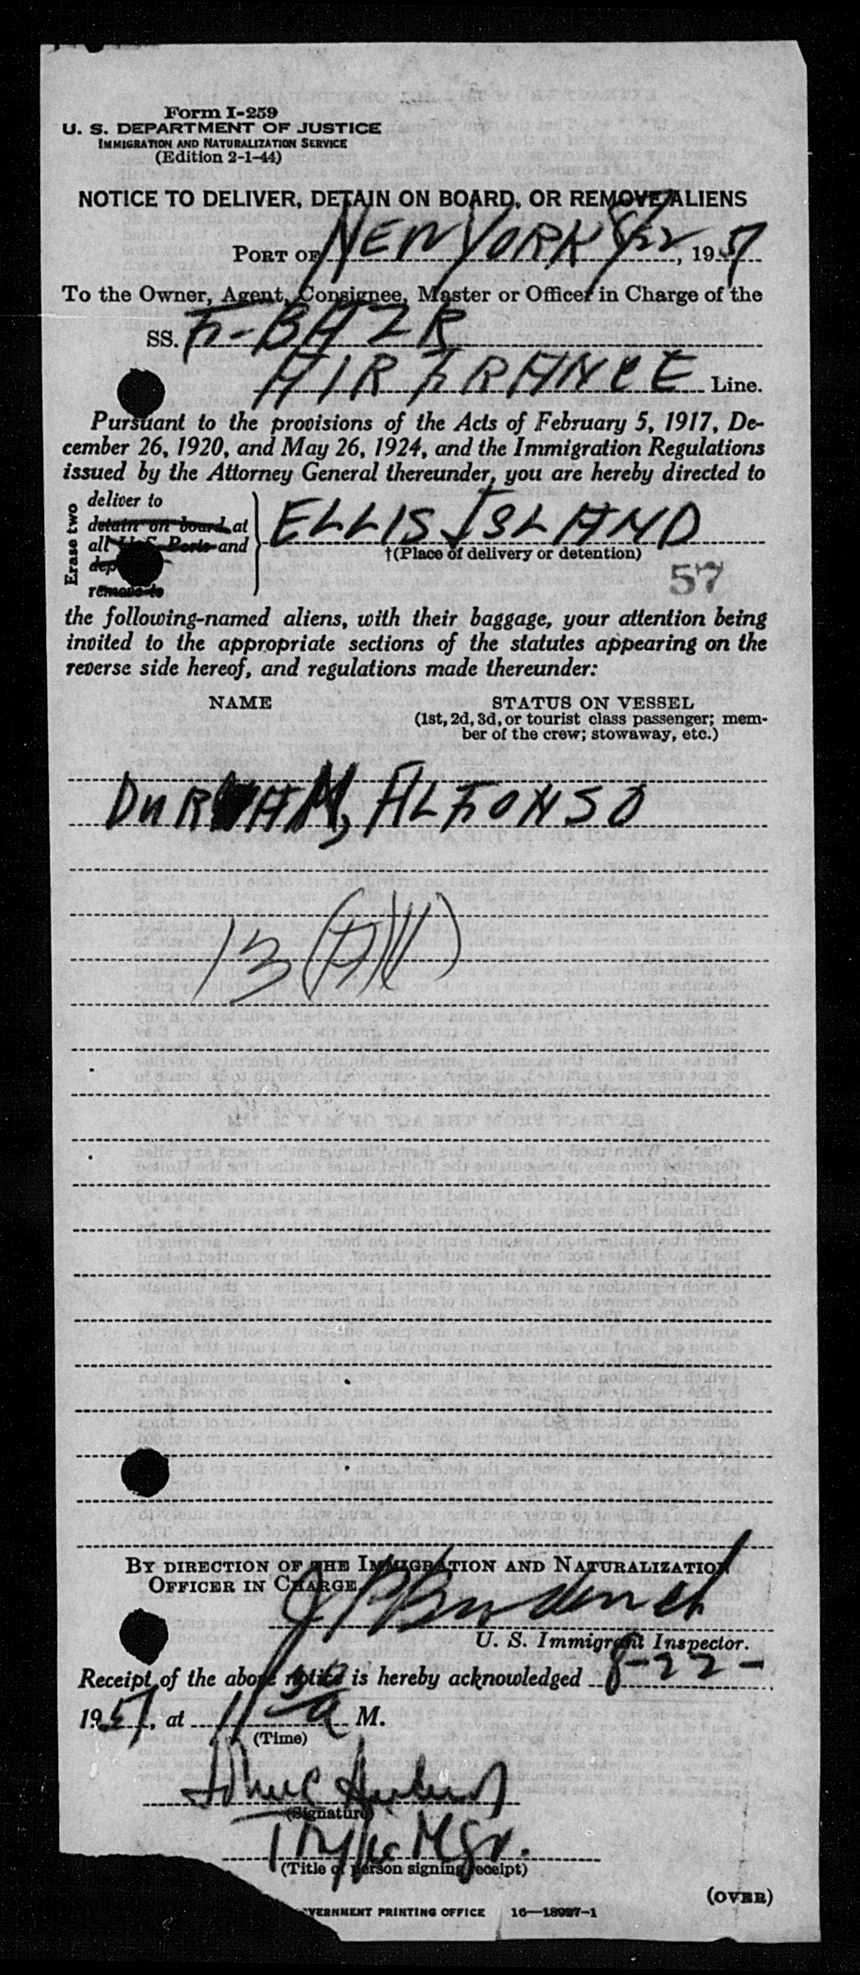 Form I-259
U. S. DEPARTMENT OF JUSTICE
IMMIGRATION AND NATURALIZATION SERVICE
(Edition 2-1-44)
NOTICE TO DELIVER, DETAIN ON BOARD, OR REMOVE ALIENS
PORT OF NEW YORK 8/22, 1951
To the Owner, Agent, Consignee, Master or Officer in Charge of the
SS. F-BAZR
AIR FRANCE Line.
Pursuant to the provisions of the Acts of February 5, 1917, De-
cember 26, 1920, and May 26, 1924, and the Immigration Regulations
issued by the Attorney General thereunder, you are hereby directed to
Erase two
deliver to
detain on board at
all U. S. Ports and
remove to
ELLIS ISLAND
†(Place of delivery or detention)
57
the following-named aliens, with their baggage, your attention being
invited to the appropriate sections of the statutes appearing on the
reverse side hereof, and regulations made thereunder:
NAME STATUS ON VESSEL
(1st, 2d, 3d, or tourist class passenger; mem-
ber of the crew; stowaway, etc.)
DURHAM, ALFONSO
13 (A)
BY DIRECTION OF THE IMMIGRATION AND NATURALIZATION
OFFICER IN CHARGE.
U. S. Immigrant Inspector.
Receipt of the above notice is hereby acknowledged 8-22-
1951, at 11 30 A M.
(Time)
John C
(Signature)
Traffic Mgr.
(Title of person signing receipt)
(OVER)
VERNMENT PRINTING OFFICE 16—18987-1